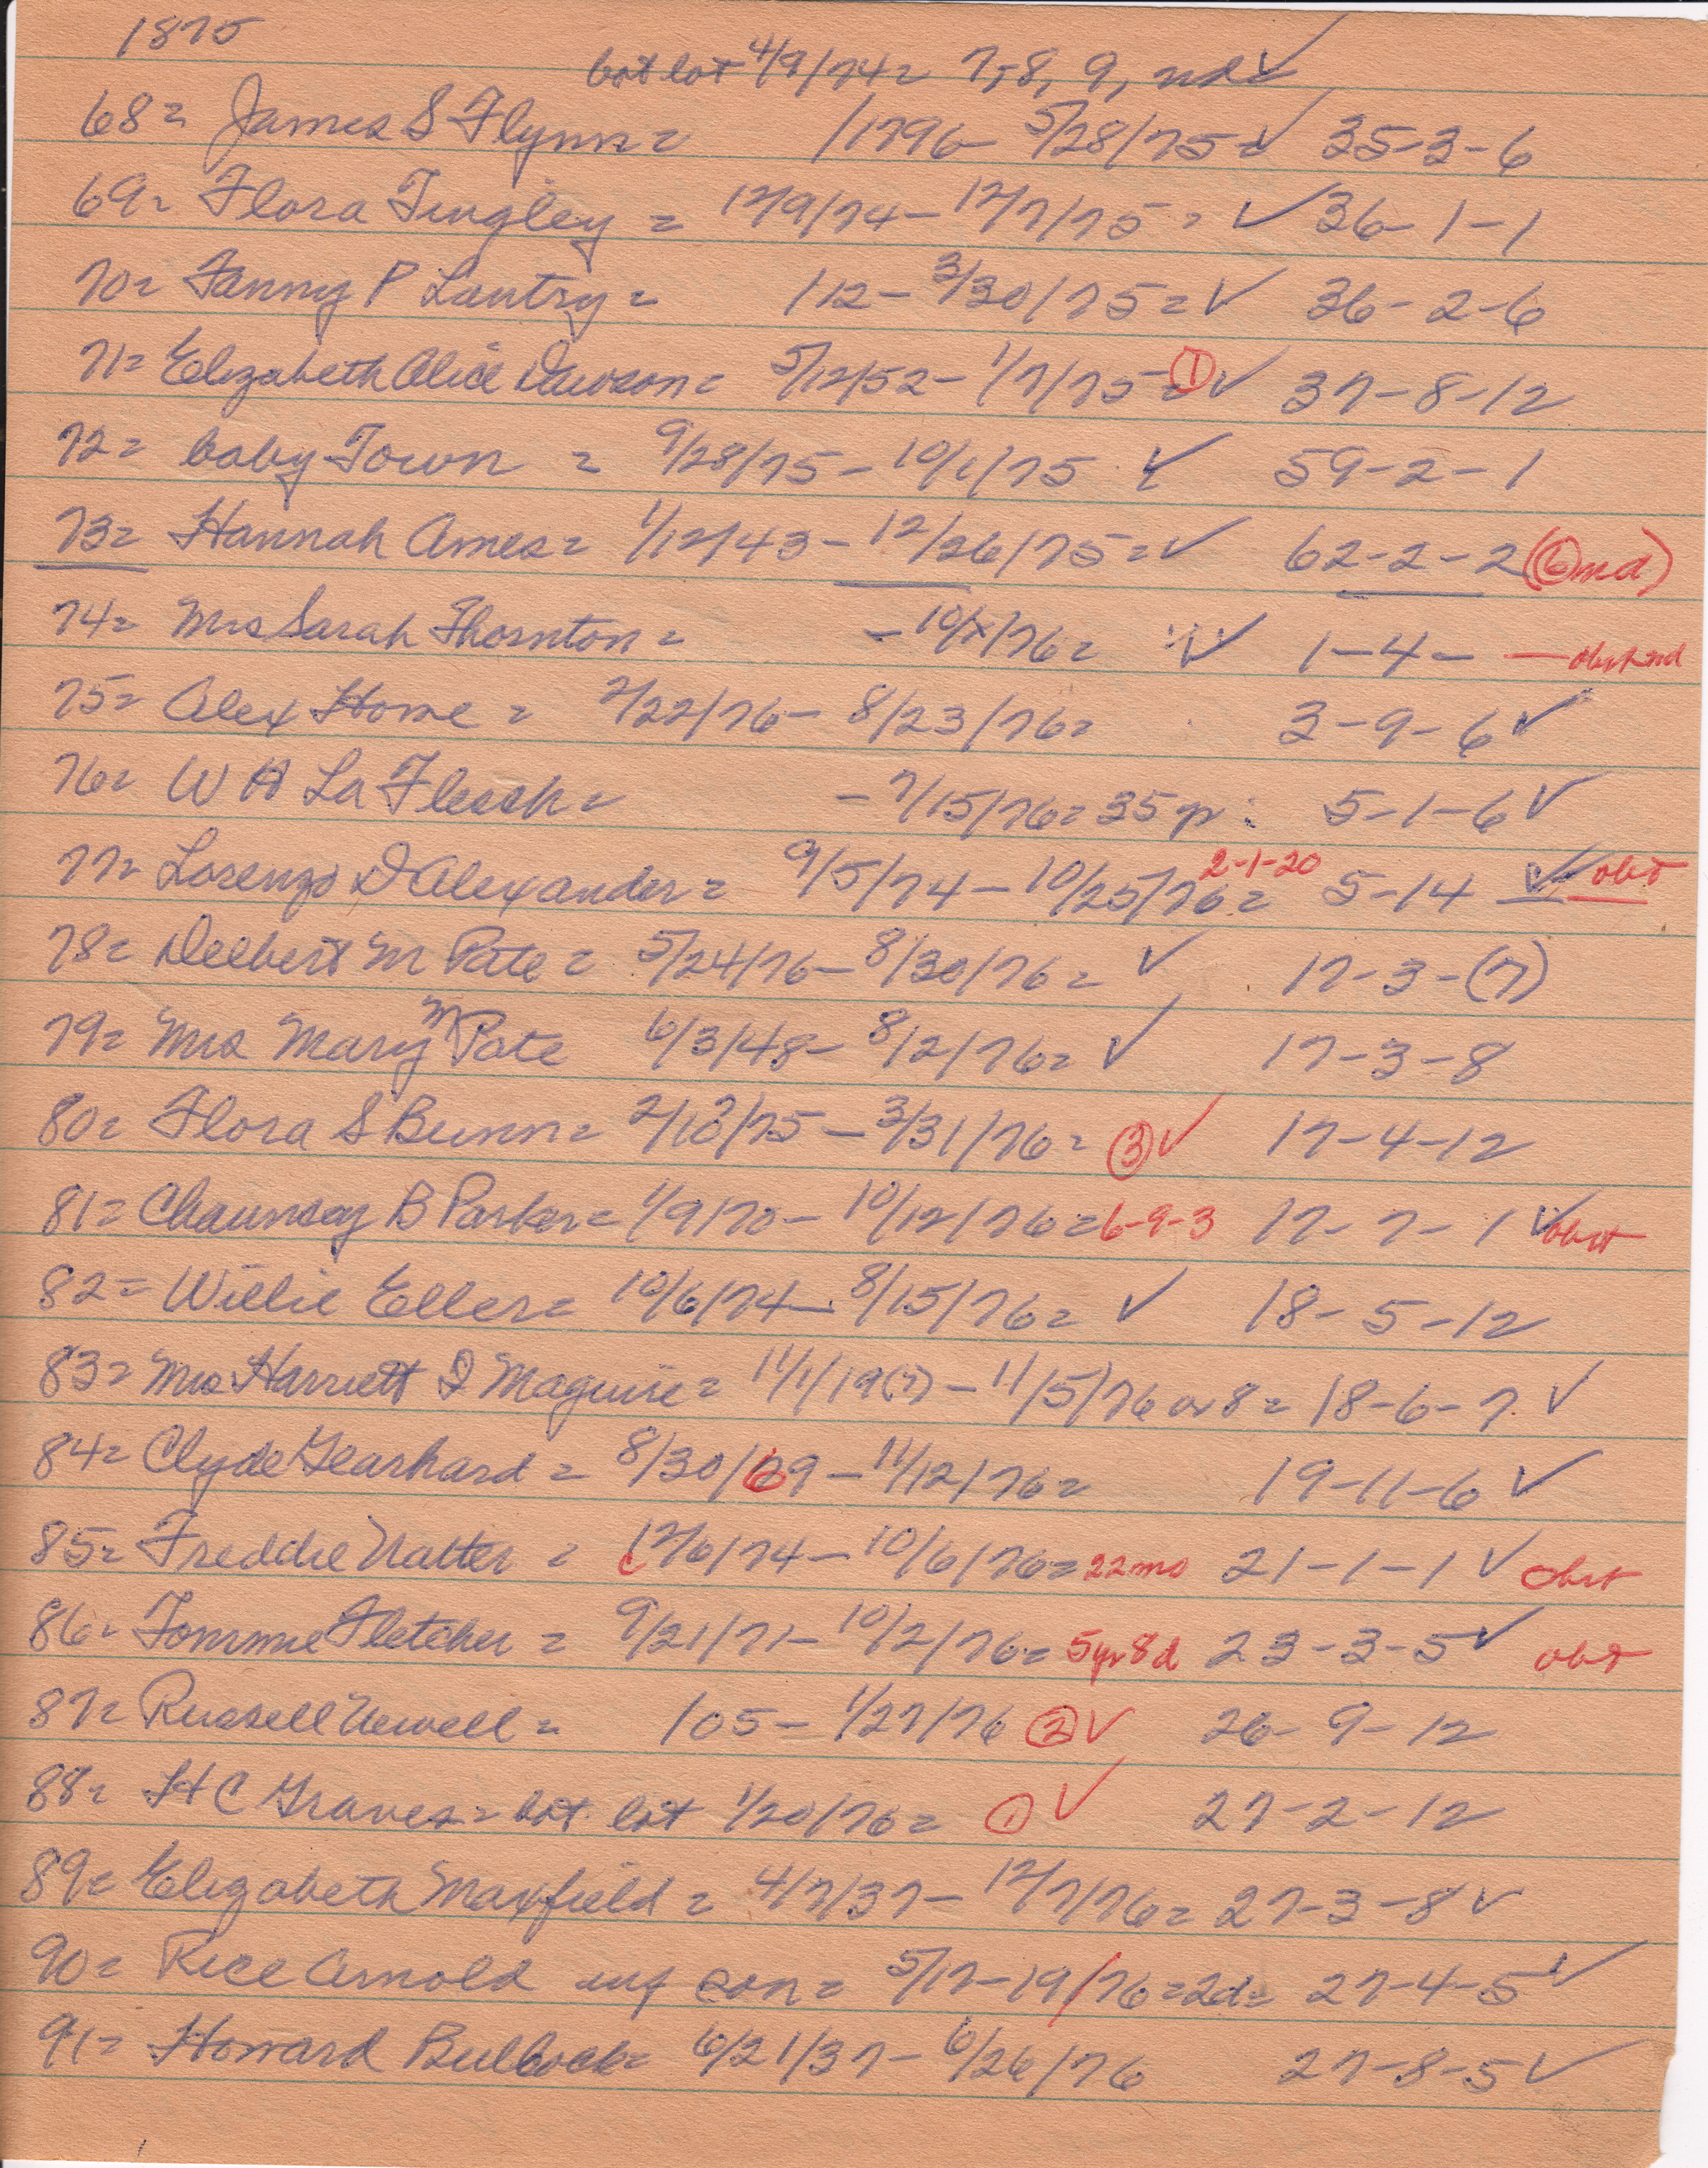 1875
bot lot 4/9/74 = 7, 8, 9, nd ✓
68 = James S Flynn = /1796 - 5/28/75 = ✓ 35-3-6
69 = Flora Tingley = 12/9/74 - 12/7/75 = ✓ 36-1-1
70 = Fanny P Lantry = 112 - 3/30/75 = ✓ 36-2-6
71 = Elizabeth Alice Dawson = 5/12/52 - 1/7/75 = ① ✓ 37-8-12
72 = baby Town = 9/28/75 - 10/1/75 ✓ 59-2-1
73 = Hannah Ames = 1/12/43 - 12/26/75 = ✓ 62-2-2 (⑥ nd)
74 = Mrs Sarah Thornton = - 10/x/76 = ✓ 1-4- — obit nd
75 = Alex Horne = 2/22/76 - 8/23/76 = 3-9-6 ✓
76 = W H La Flesh = - 7/15/76 = 35 yr: 5-1-6 ✓
77 = Lorenzo D Alexander = 9/5/74 - 10/25/76 = 2-1-20 5-14 ✓ obt
78 = Delbert M Pate = 5/24/76 - 8/30/76 = ✓ 17-3-(7)
79 = Mrs Mary M Pate 6/3/48 - 8/12/76 = ✓ 17-3-8
80 = Flora S Bunn = 2/ /75 - 3/31/76 = ③ ✓ 17-4-12
81 = Chauncey B Parker = 1/9/70 - 10/12/76 = 6-9-3 17-7-1 ✓ obit
82 = Willie Eller = 10/6/74 - 8/15/76 = ✓ 18-5-12
83 = Mrs Harriett D Maguire = 11/1/19(?) - 11/5/76 or 8 = 18-6-7 ✓
84 = Clyde Gearhard = 8/30/69 - 11/12/76 = 19-11-6 ✓
85 = Freddie Natter = 12/6/74 - 10/6/76 = 22 mo 21-1-1 ✓ obit
86 = Tommie Fletcher = 9/21/71 - 10/2/76 = 5 yr 8 d 23-3-5 ✓ obt
87 = Russell Newell = 105 - 1/27/76 ② ✓ 26-9-12
88 = H C Graves = bot lot 1/20/76 = ① ✓ 27-2-12
89 = Elizabeth Maxfield = 4/7/37 - 12/7/76 = 27-3-8 ✓
90 = Rice Arnold inf son = 5/17-19/76 = 2d = 27-4-5 ✓
91 = Howard Bullock = 6/21/37 - 6/26/76 27-8-5 ✓